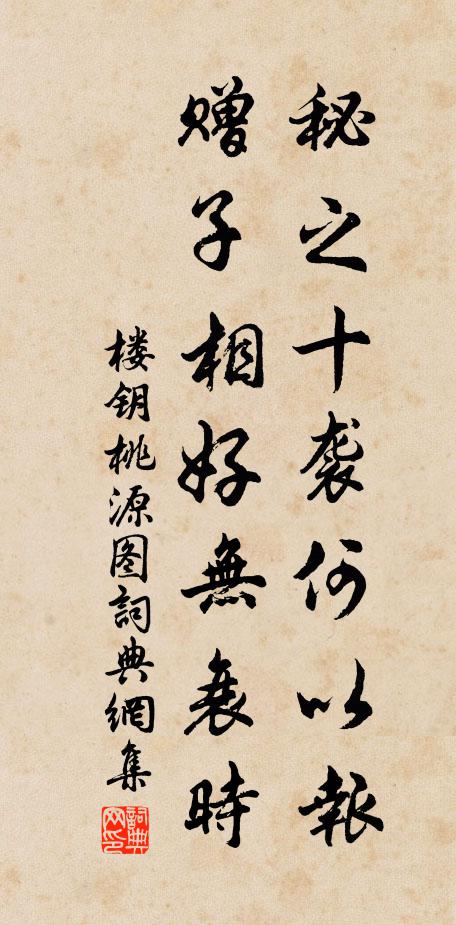 秘之十袭何以報
赠子相好無衰時
楼钥桃源图詞典網集
詞典网印